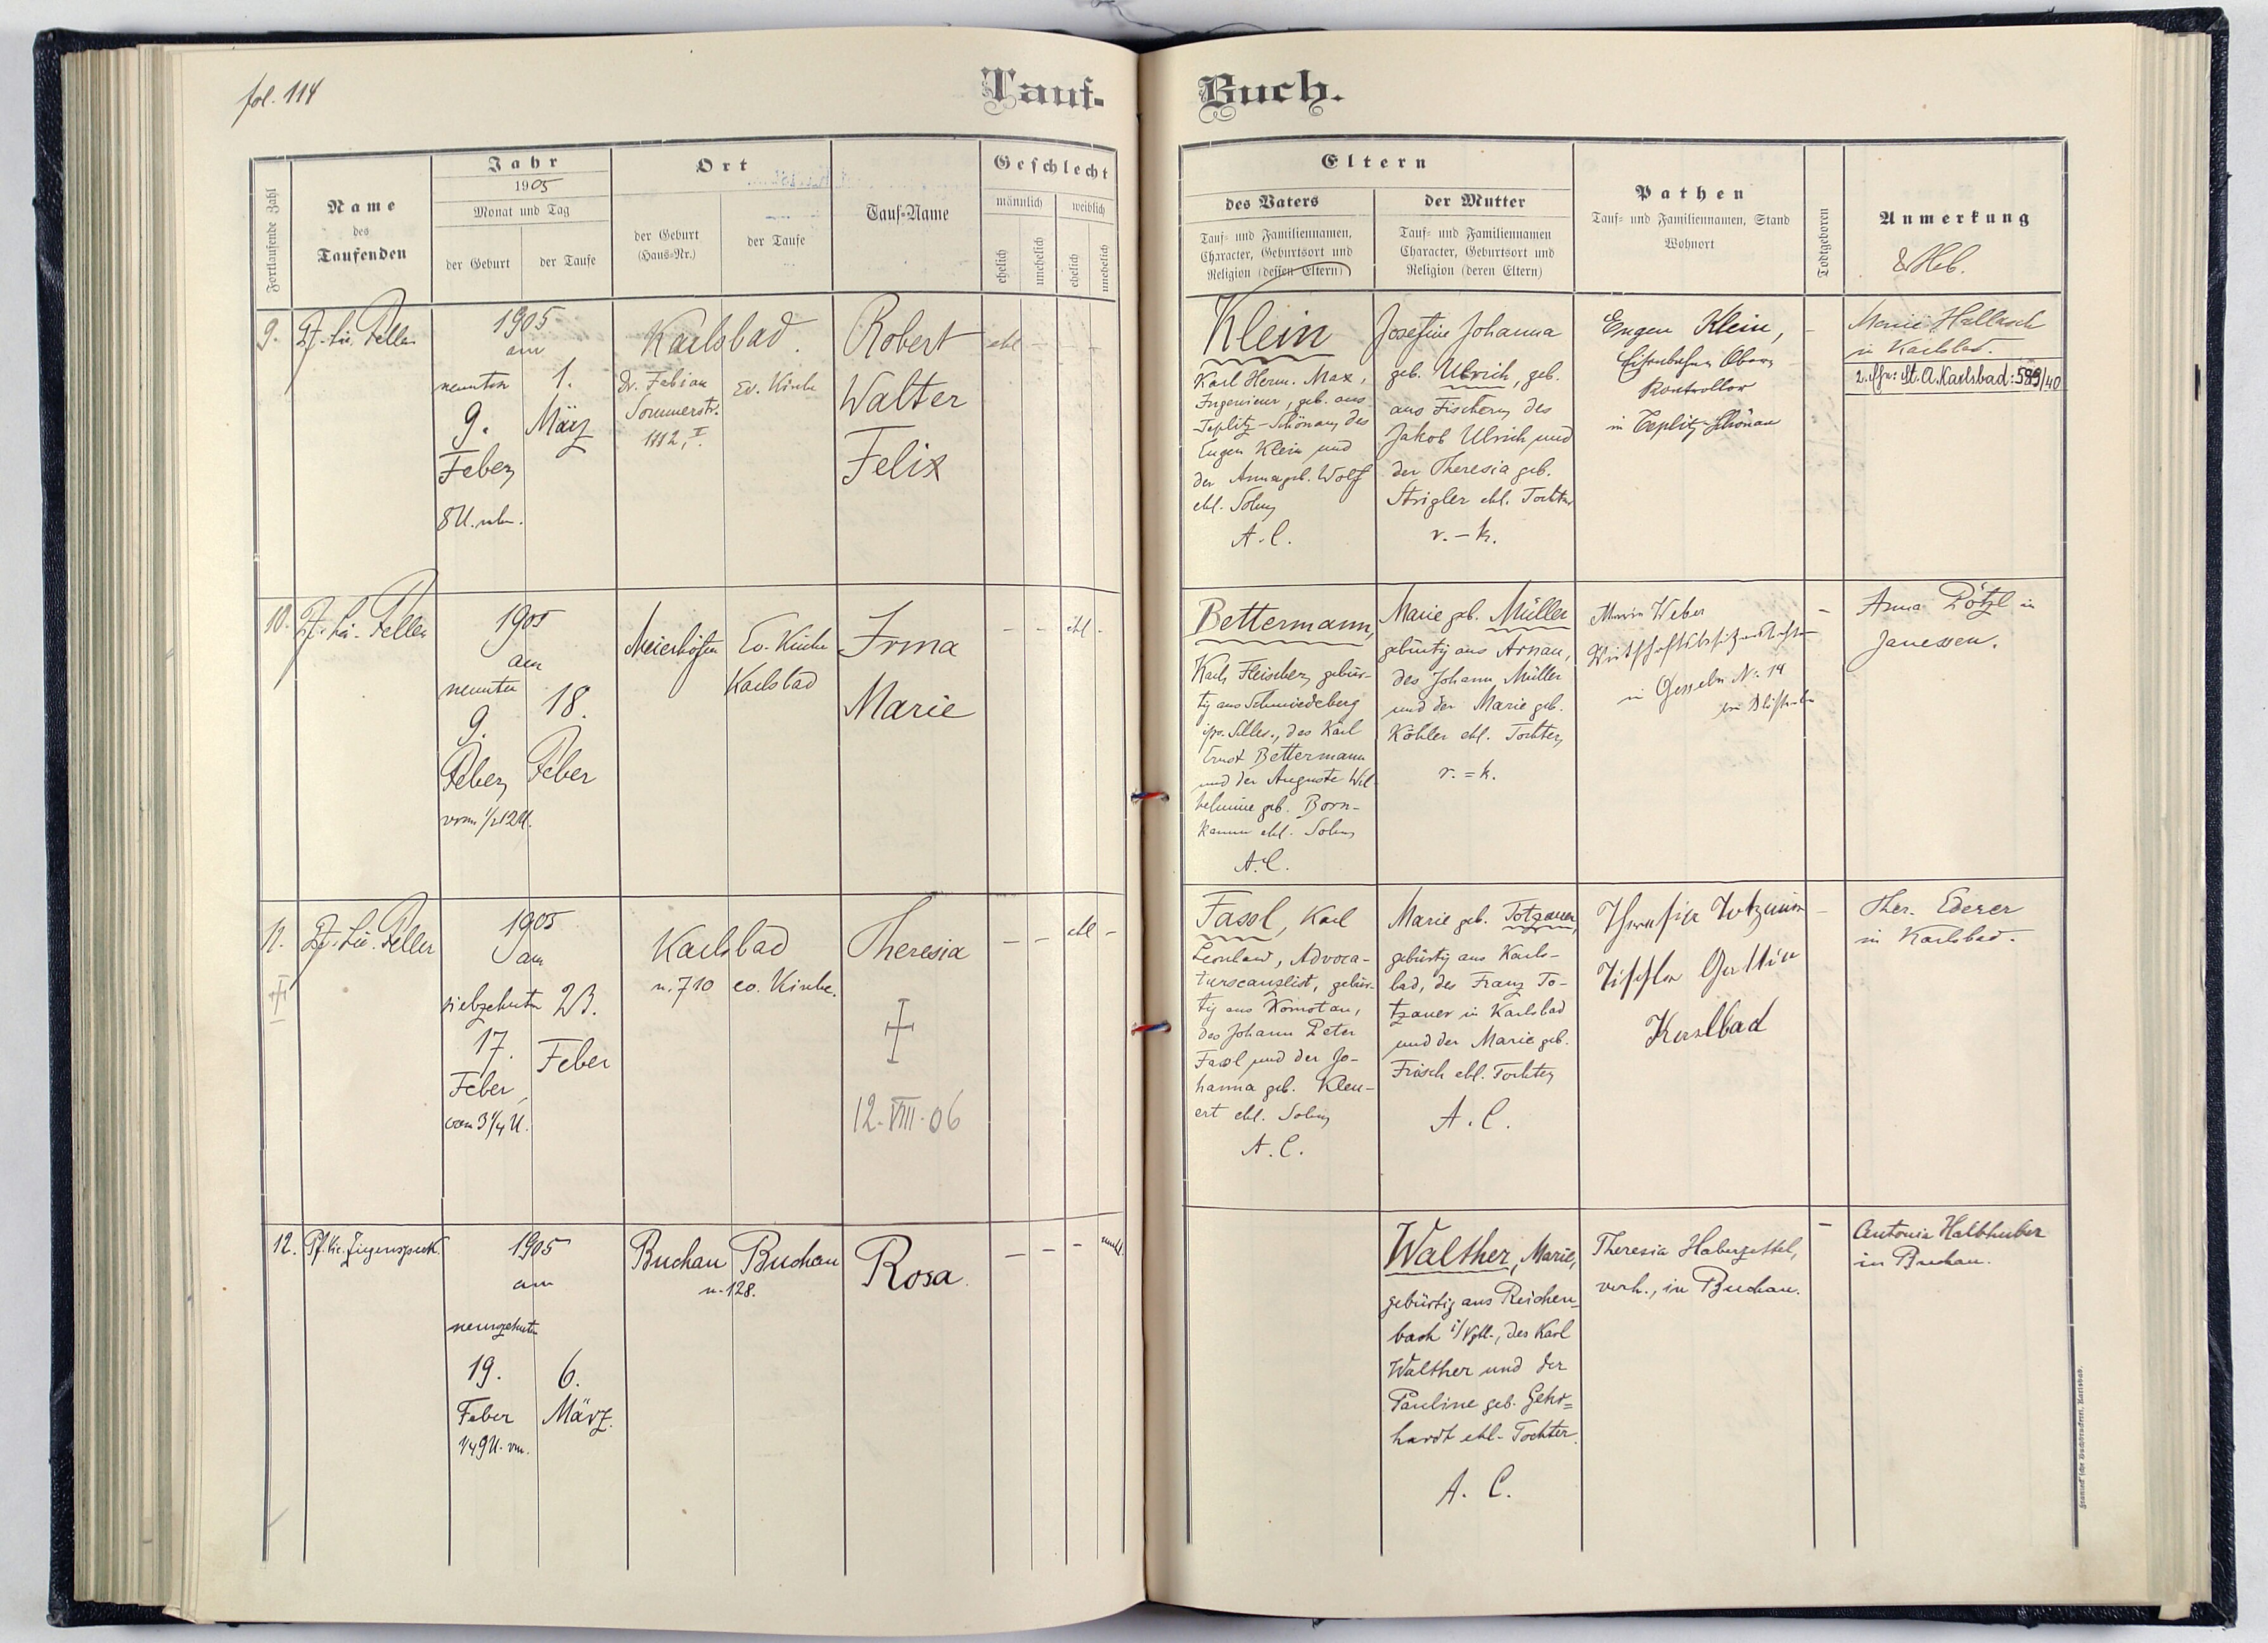 fol. 114
Tauf-
Buch.
Fortlaufende Zahl
Name
des
Taufenden
Jahr
1905
Monat und Tag
der Geburt
der Taufe
Ort
der Geburt
(Haus-Nr.)
der Taufe
Tauf-Name
Geschlecht
männlich
weiblich
ehelich
unehelich
ehelich
unehelich
Eltern
des Vaters
Tauf- und Familiennamen,
Character, Geburtsort und
Religion (dessen Eltern)
der Mutter
Tauf- und Familiennamen
Character, Geburtsort und
Religion (deren Eltern)
Pathen
Tauf- und Familiennamen, Stand
Wohnort
Todtgeboren
Anmerkung
& Heb.
9.
Pf. Lic. Feller
1905
am
neunten
9.
Feber
8 U. nm.
1.
März
Karlsbad.
Dr. Fabian
Sommerstr.
1112, I.
Ev. Kirche
Robert
Walter
Felix
ehl
–
–
–
Klein
Karl Herm. Max,
Ingenieur, geb. aus
Teplitz-Schönau, des
Eugen Klein und
der Anna geb. Wolf
ehl. Sohn
A. C.
Josefine Johanna
geb. Ulrich, geb.
aus Fischern, des
Jakob Ulrich und
der Theresia geb.
Strigler ehl. Tochter
r. – k.
Eugen Klein,
Eisenbahn Ober
Kontrollor
in Teplitz-Schönau
–
Marie Hallasch
in Karlsbad.
St. A. Karlsbad: 599/40
10.
Pf. Lic. Feller
1905
am
neunten
9.
Feber
vorm 1/2 12 U.
18.
Feber
Meierhöfen
Ev. Kirche
Karlsbad
Irma
Marie
–
–
ehl
-
Bettermann,
Karl, Fleischer, gebür-
tig aus Schmiedeberg
pr. Schles., des Karl
Ernst Bettermann
und der Auguste Wil-
helmine geb. Born-
kamm ehl. Sohn
A. C.
Marie geb. Müller
gebürtig aus Arnau,
des Johann Müller
und der Marie geb.
Köhler ehl. Tochter
r. = k.
Marie Weber
in Gesseln N. 14
–
Anna Pötzl in
Janessen.
11.
Pf. Lic. Feller
1905
am
siebzehnten
17.
Feber,
vm 3 1/4 U.
23.
Feber
Karlsbad
n. 710
ev. Kirche.
Theresia
12. VIII. 06
–
–
ehl
–
Fassl, Karl
Leonhard, Advoca-
turscanzlist, gebür-
tig aus Komotau,
des Johann Peter
Fassl und der Jo-
hanna geb. Klen-
ert ehl. Sohn
A. C.
Marie geb. Totzauer,
gebürtig aus Karls-
bad, des Franz To-
tzauer in Karlsbad
und der Marie geb.
Frisch ehl. Tochter
A. C.
Theresia Totzauer
Tischler Gattin
Karlbad
–
Ther. Ederer
in Karlsbad.
12.
Pf. Lic. Ziegenspeck.
1905
am
neunzehnten
19.
Feber
1/4 9 U. vm.
6.
März.
Buchau
Buchau
n. 128.
Rosa.
–
–
–
unehl.
Walther, Marie,
gebürtig aus Reichen-
bach i/Vgtl., des Karl
Walther und der
Pauline geb. Gehr=
hardt ehl. Tochter.
A. C.
Theresia Haberzettel,
verh., in Buchau.
–
Antonia Halbhuber
in Buchau.